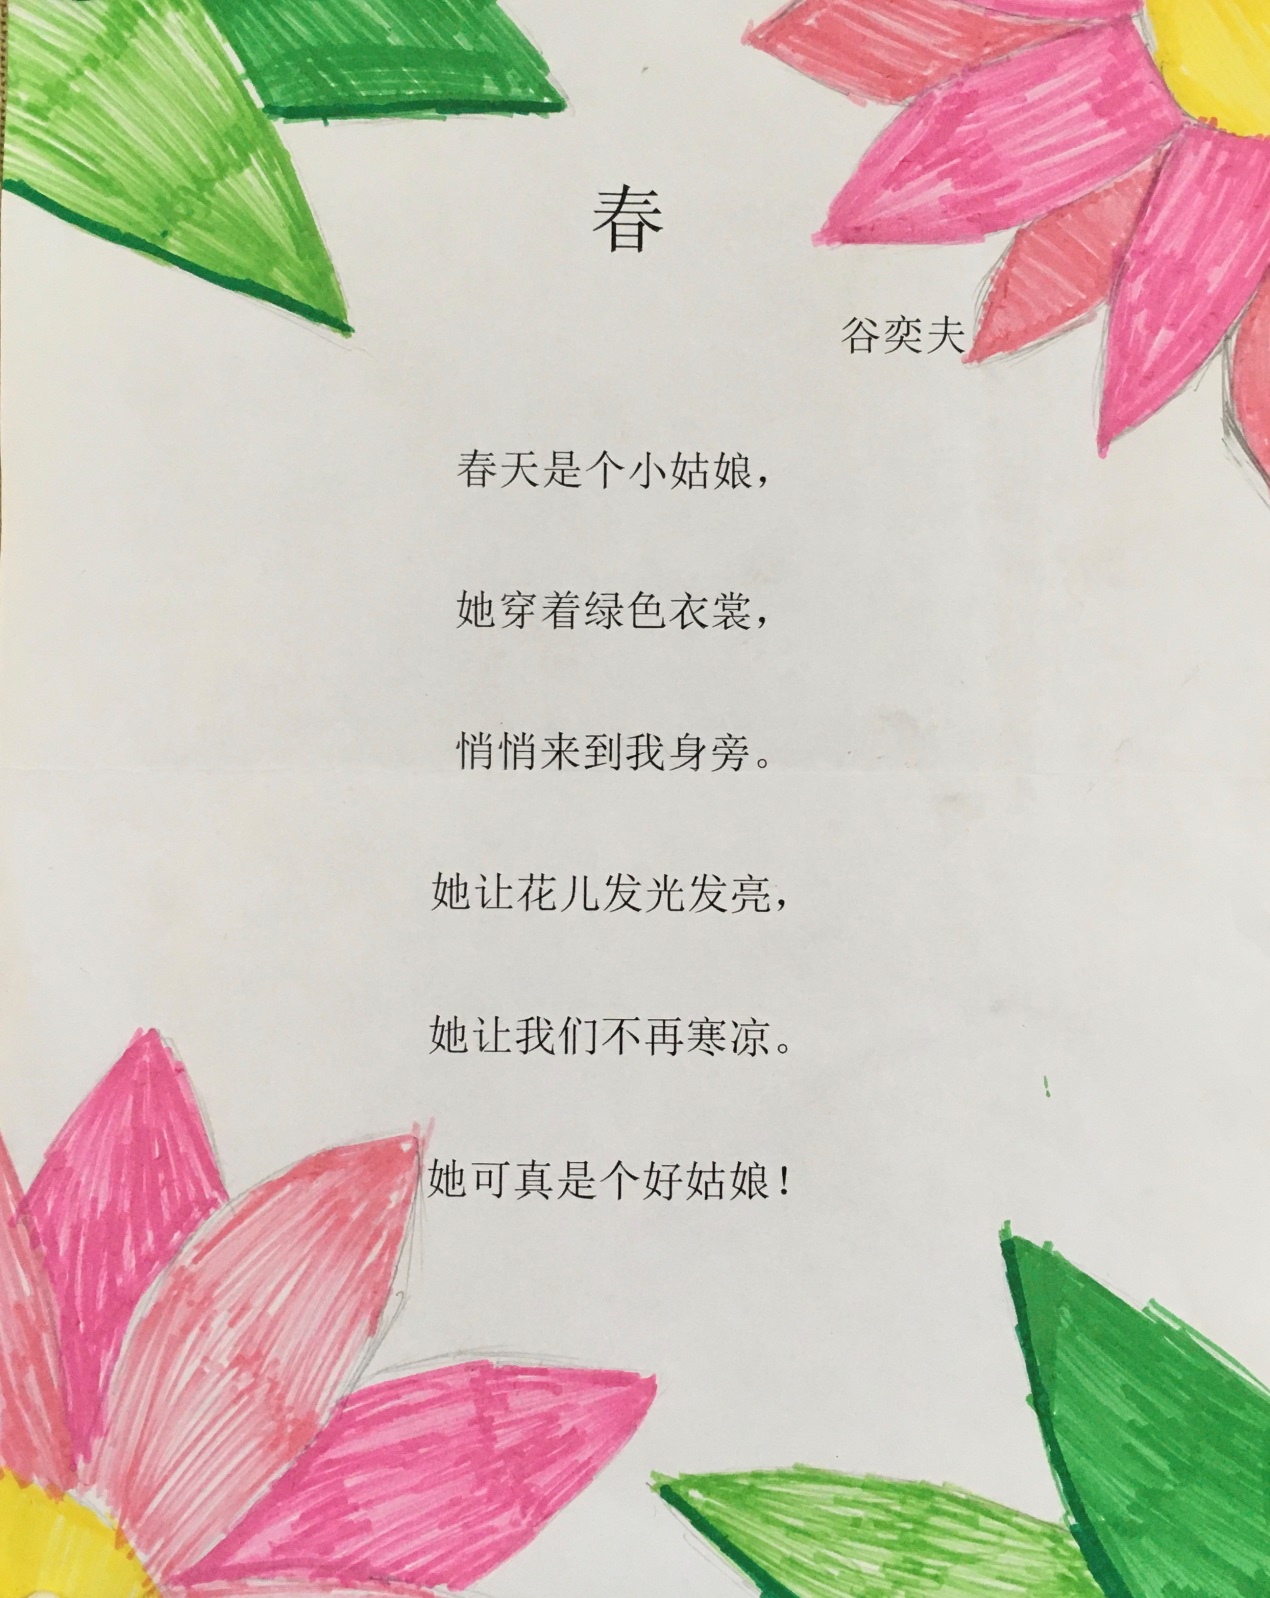 春
谷奕夫
春天是个小姑娘，
她穿着绿色衣裳，
悄悄来到我身旁。
她让花儿发光发亮，
她让我们不再寒凉。
她可真是个好姑娘！